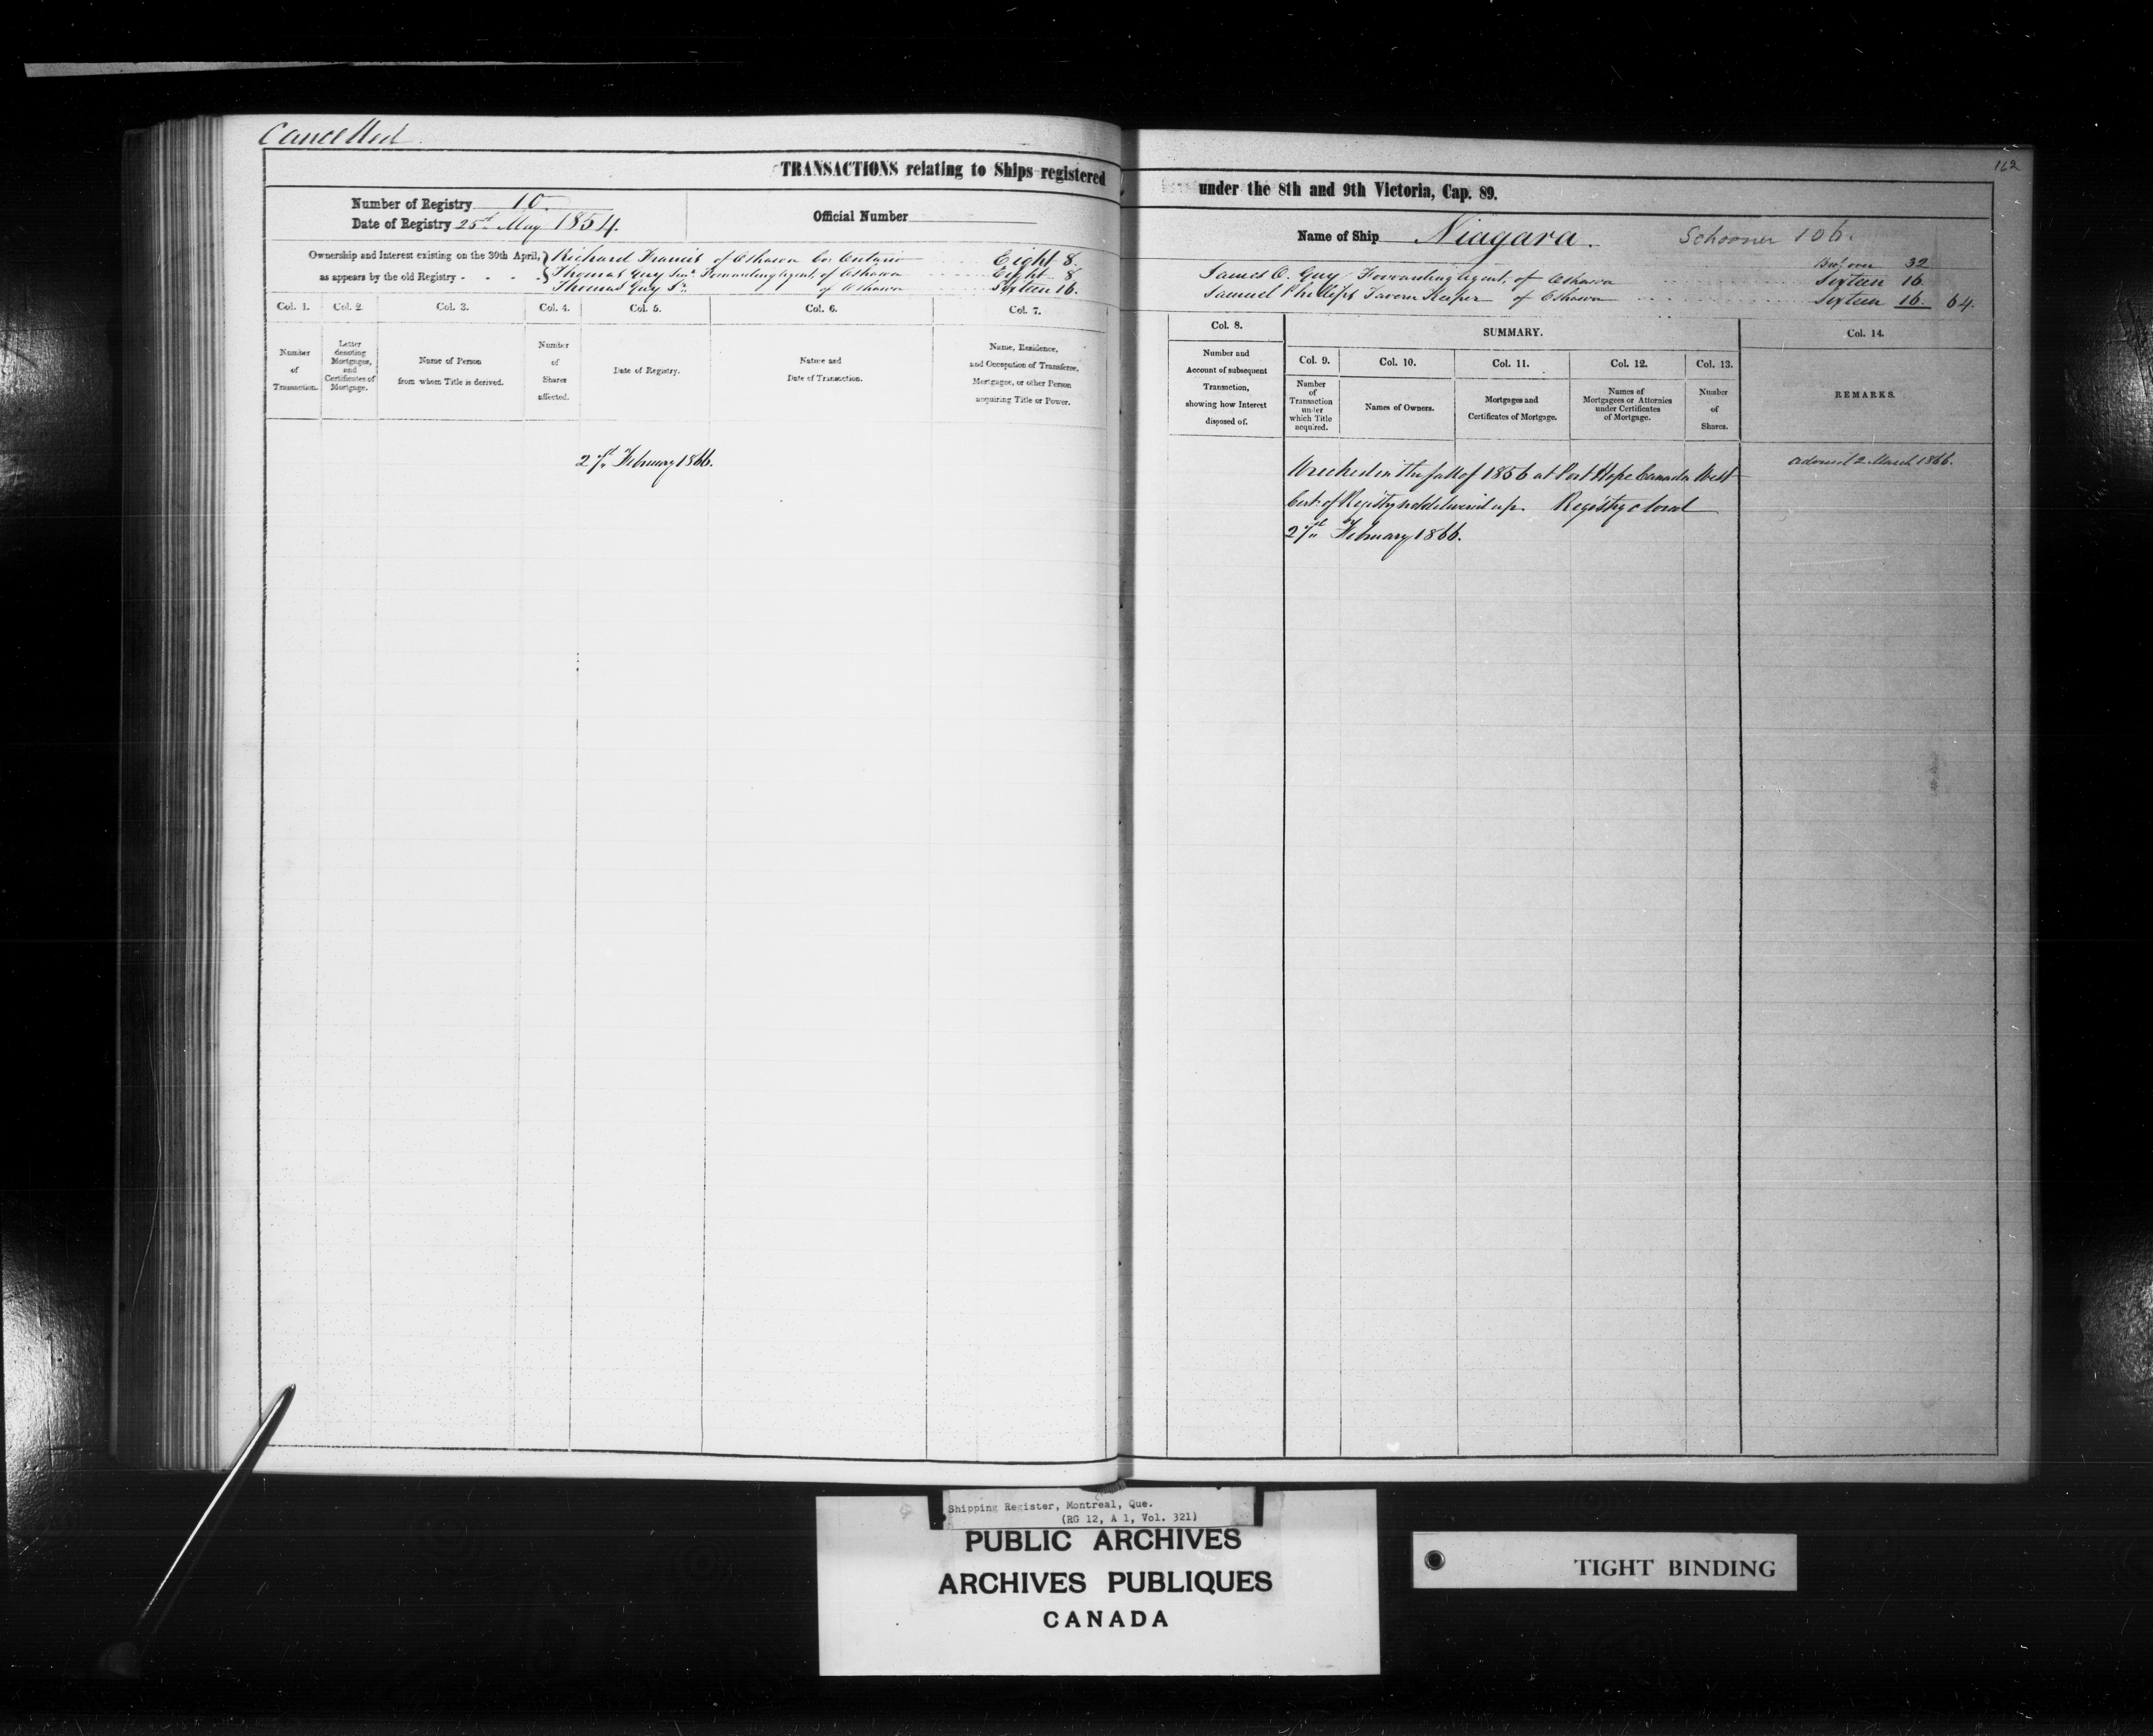 Cancelled
TRANSACTIONS relating to Ships registered
Number of Registry 10
Date of Registry 25th May 1854.
Official Number
Ownership and Interest existing on the 30th April,
as appears by the old Registry - - - -
Richard Francis of Oshawa Co: Ontario Eight 8.
Thomas Guy Senr. Forwarding Agent, of Oshawa Eight 8
Thomas Guy Jr. of Oshawa Sixteen 16.
Col. 1. Col. 2. Col. 3. Col. 4. Col. 5. Col. 6. Col. 7.
Number
of
Transaction.
Letter
denoting
Mortgages,
and
Certificates of
Mortgage.
Name of Person
from whom Title is derived.
Number
of
Shares
affected.
Date of Registry.
Nature and
Date of Transaction.
Name, Residence,
and Occupation of Transferee,
Mortgagee, or other Person
acquiring Title or Power.
February 1866.
162
under the 8th and 9th Victoria, Cap. 89.
Name of Ship Niagara. Schooner 106.
over 32
James O. Guy Forwarding Agent, of Oshawa Sixteen 16
Samuel Phillips Tavern Keeper of Oshawa Sixteen 16. 64.
Col. 8.
Number and
Account of subsequent
Transaction,
showing how Interest
disposed of.
SUMMARY.
Col. 9. Col. 10. Col. 11. Col. 12. Col. 13.
Number
of
Transaction
under
which Title
acquired.
Names of Owners.
Mortgages and
Certificates of Mortgage.
Names of
Mortgagees or Attornies
under Certificates
of Mortgage.
Number
of
Shares.
Col. 14.
REMARKS.
Wrecked in the fall of 1856 at Port Hope Canada West
Cert: of Registry not delivered up. Registry closed
February 1866.
Advised 2 March 1866.
Shipping Register, Montreal, Que.
(RG 12, A 1, Vol. 321)
PUBLIC ARCHIVES
ARCHIVES PUBLIQUES
CANADA
TIGHT BINDING